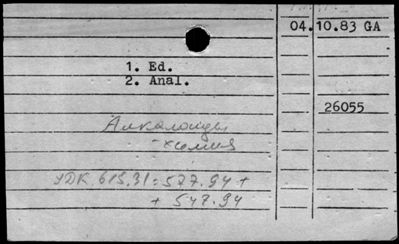 04.10.83 GA
1. Ed.
2. Anal.
26055
Алкалоиды
- химия
УДК 615.31:577.94 +
+ 547.94